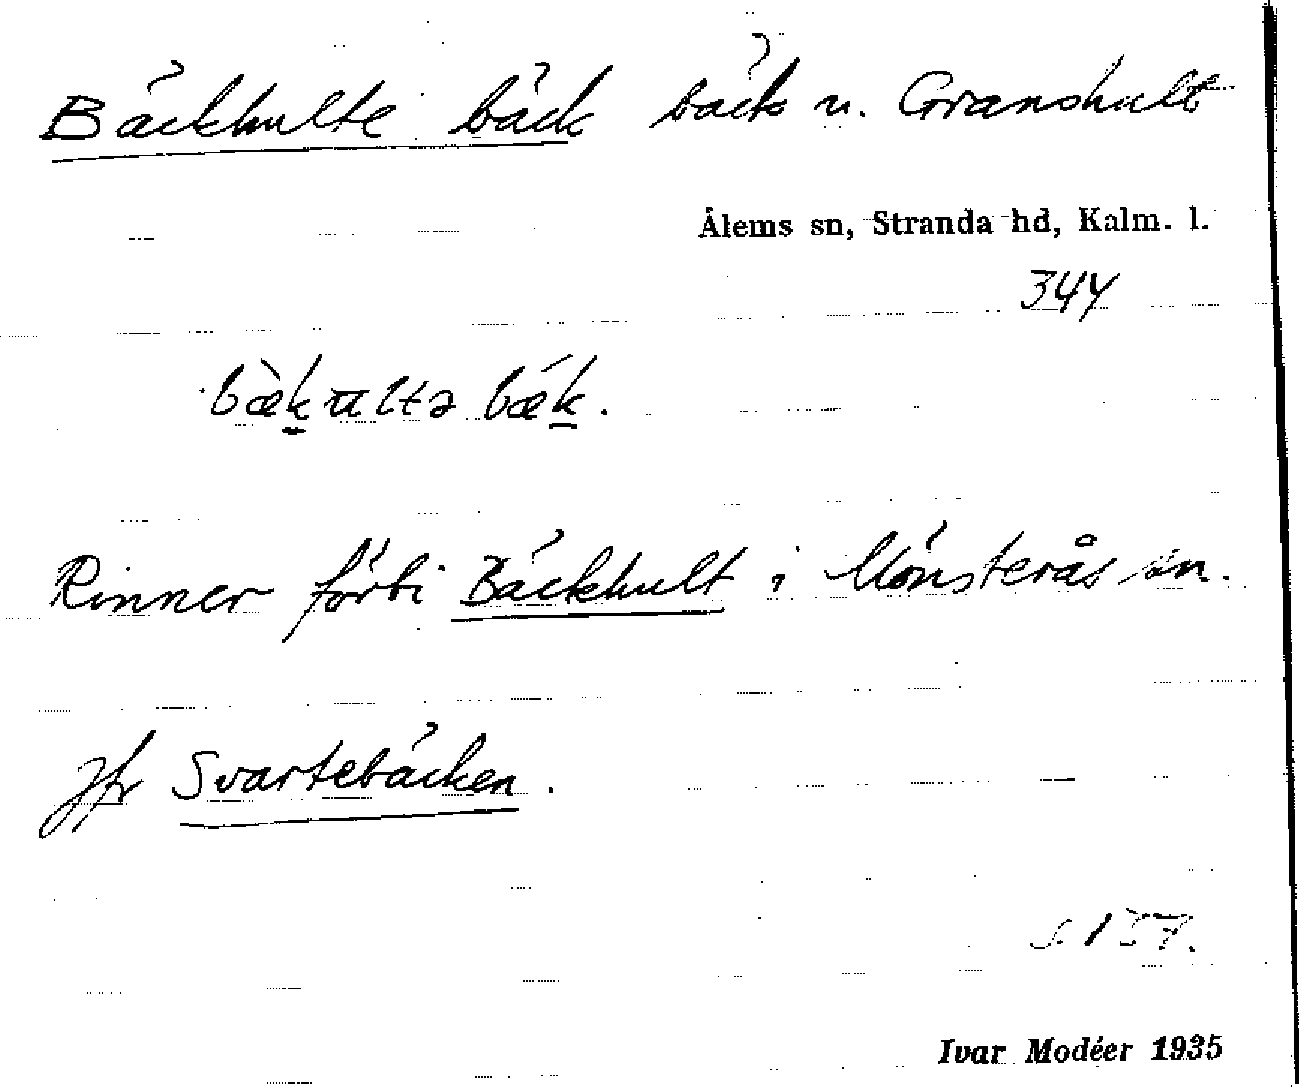 Bäckhulte bäck bäck u. Granshult
Ålems sn, Stranda hd, Kalm. l.
344
bæ̀kulta bǽk.
Rinner förbi Bäckhult i Mönsterås sn.
Jfr Svartebäcken.
s. 157.
Ivar Modéer 1935